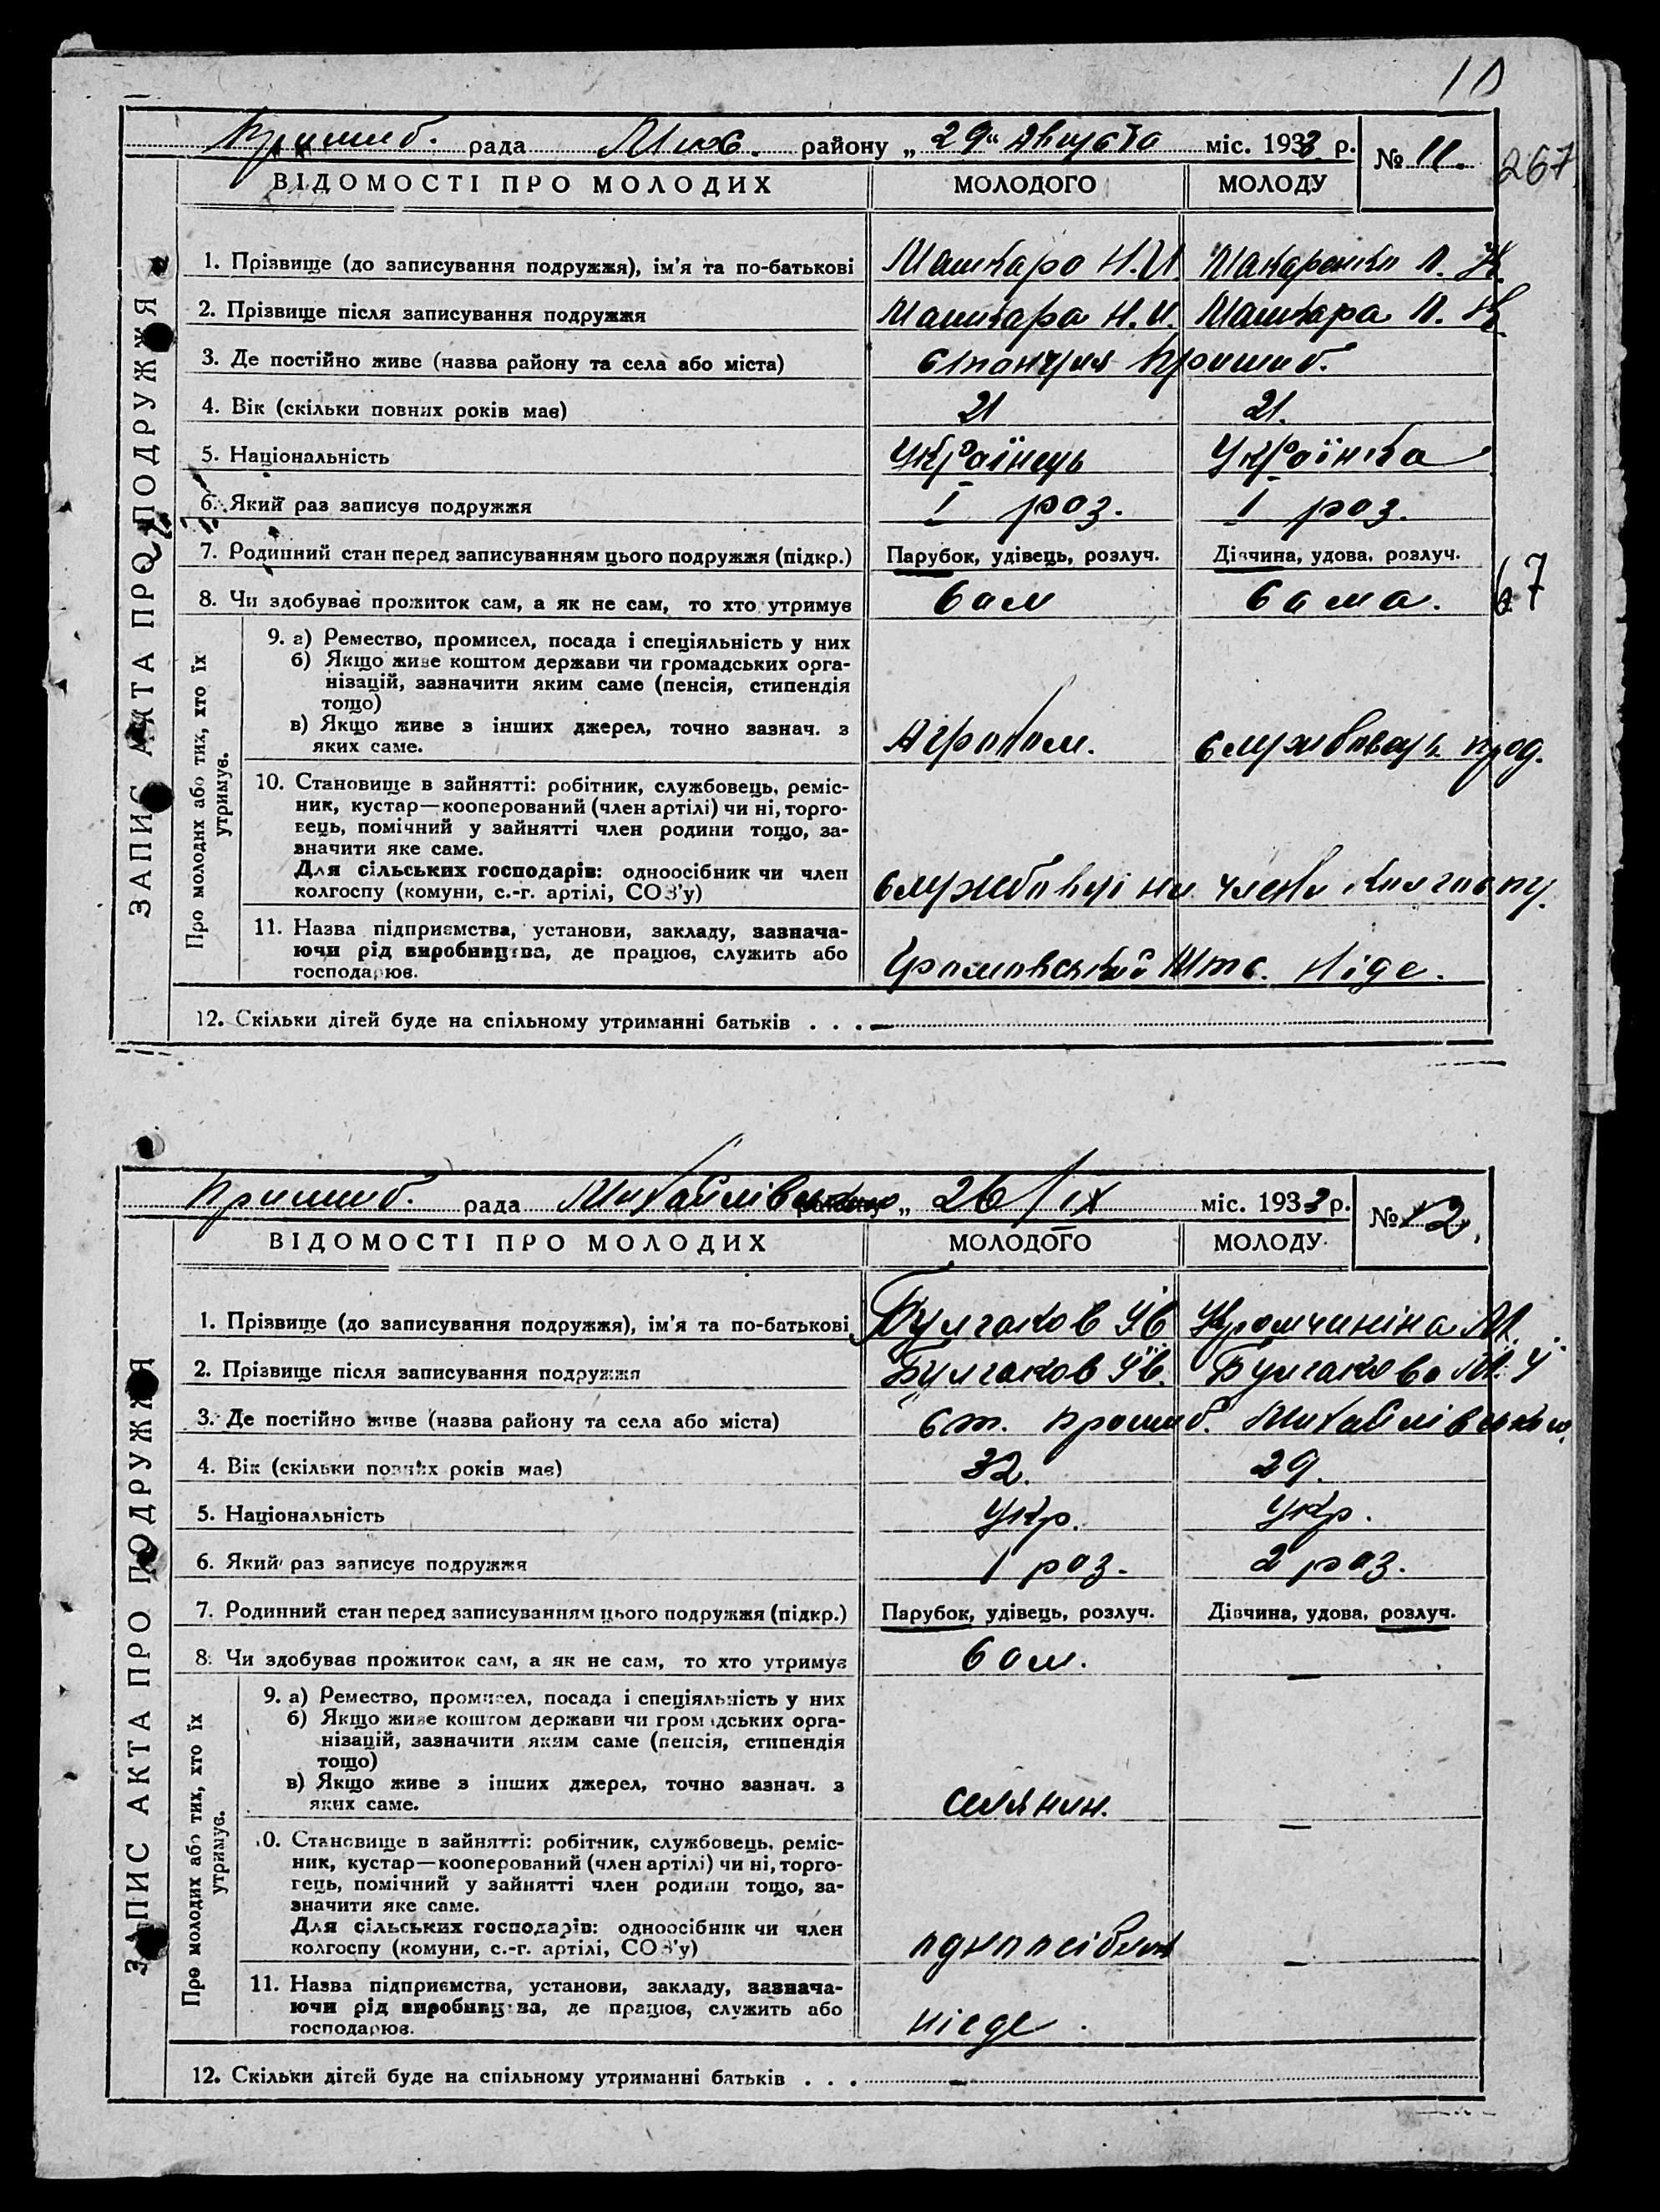 10
Пришиб. рада Мих. району „ 29 “ Августа міс. 1933 р. № 11.
267
ВІДОМОСТІ ПРО МОЛОДИХ МОЛОДОГО МОЛОДУ
ЗАПИС АКТА ПРО ПОДРУЖЖЯ
1. Прізвище (до записування подружжя), ім'я та по-батькові Машкара Н. И. Макаренко П.
2. Прізвище після записування подружжя Машкара Н. И. Машкара П.
3. Де постійно живе (назва району та села або міста) Станция Пришиб.
4. Вік (скільки повних років має) 21 21.
5. Національність Українець Українка
6. Який раз записує подружжя I раз. I раз.
7. Родинний стан перед записуванням цього подружжя (підкр.) Парубок, удівець, розлуч. Дівчина, удова, розлуч.
8. Чи здобуває прожиток сам, а як не сам, то хто утримує Сам Сама.
67
Про молодих або тих, хто їх утримує.
9. а) Ремество, промисел, посада і спеціяльність у них
б) Якщо живе коштом держави чи громадських орга-
нізацій, зазначити яким саме (пенсія, стипендія
тощо)
в) Якщо живе з інших джерел, точно зазнач. з
яких саме. Агроном. Службовець
10. Становище в зайнятті: робітник, службовець, реміс-
ник, кустар—кооперований (член артілі) чи ні, торго-
вець, помічний у зайнятті член родини тощо, за-
значити яке саме.
Для сільських господарів: одноосібник чи член
колгоспу (комуни, с.-г. артілі, СОЗ'у) Службовці не члени колгоспу.
11. Назва підприємства, установи, закладу, зазнача-
ючи рід виробництва, де працює, служить або
господарює. Мтс. Ніде.
12. Скільки дітей буде на спільному утриманні батьків . . . —
Пришиб. рада Михайлівського „ 26/IX міс. 1933 р. № 12.
ВІДОМОСТІ ПРО МОЛОДИХ МОЛОДОГО МОЛОДУ
ЗАПИС АКТА ПРО ПОДРУЖЖЯ
1. Прізвище (до записування подружжя), ім'я та по-батькові Булгаков М.
2. Прізвище після записування подружжя Булгаков Булгакова М.
3. Де постійно живе (назва району та села або міста) ст. Пришиб. Михайлівськ
4. Вік (скільки повних років має) 32. 29.
5. Національність Укр. Укр.
6. Який раз записує подружжя 1 раз. 2 раз.
7. Родинний стан перед записуванням цього подружжя (підкр.) Парубок, удівець, розлуч. Дівчина, удова, розлуч.
8. Чи здобуває прожиток сам, а як не сам, то хто утримує Сам. —
Про молодих або тих, хто їх утримує.
9. а) Ремество, промисел, посада і спеціяльність у них
б) Якщо живе коштом держави чи громадських орга-
нізацій, зазначити яким саме (пенсія, стипендія
тощо)
в) Якщо живе з інших джерел, точно зазнач. з
яких саме. селянин. —
10. Становище в зайнятті: робітник, службовець, реміс-
ник, кустар—кооперований (член артілі) чи ні, торго-
вець, помічний у зайнятті член родини тощо, за-
значити яке саме.
Для сільських господарів: одноосібник чи член
колгоспу (комуни, с.-г. артілі, СОЗ'у) одноосібник —
11. Назва підприємства, установи, закладу, зазнача-
ючи рід виробництва, де працює, служить або
господарює. ніде.
12. Скільки дітей буде на спільному утриманні батьків . . . —